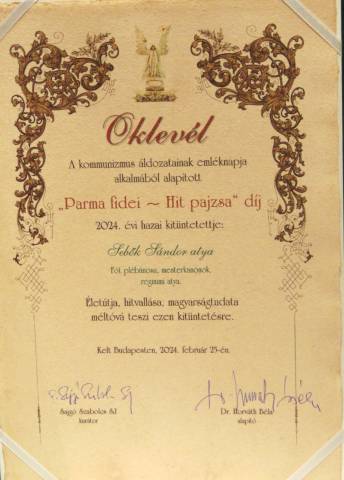 Oklevél
A kommunizmus áldozatainak emléknapja
alkalmából alapított
„Parma fidei ~ Hit pajzsa" díj
2024. évi hazai kitüntetettje:
Sebők Sándor atya
Fóti plébánosa, mesterkanonok,
regnumi atya.
Életútja, hitvallása, magyarságtudata
méltóvá teszi ezen kitüntetésre.
Kelt Budapesten, 2024. február 25-én.
Sajgó Szabolcs SJ
kurátor
Dr. Horváth Béla
alapító